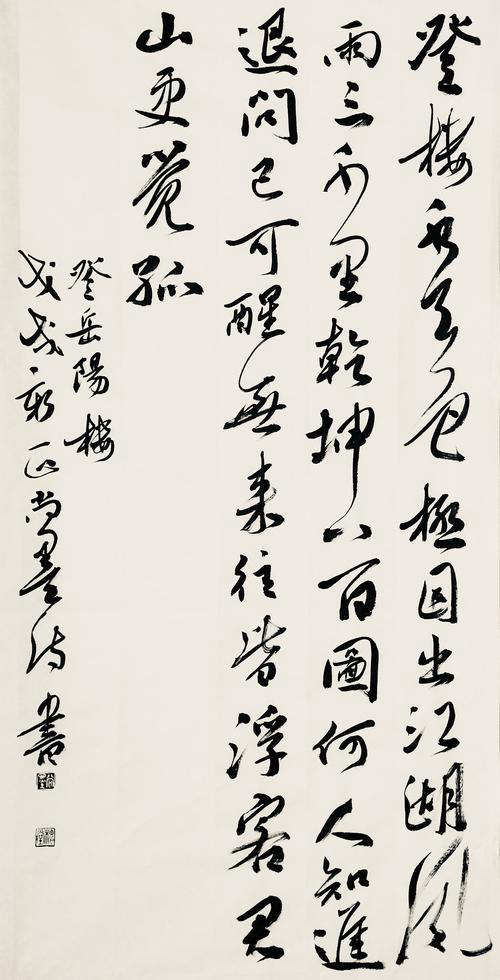 登樓天色極目出江湖風
雨三千里乾坤八百圖何人知進
退問己可醒無來往皆浮客君
山更覺孤
登岳陽樓
戊戌新正尚詩書